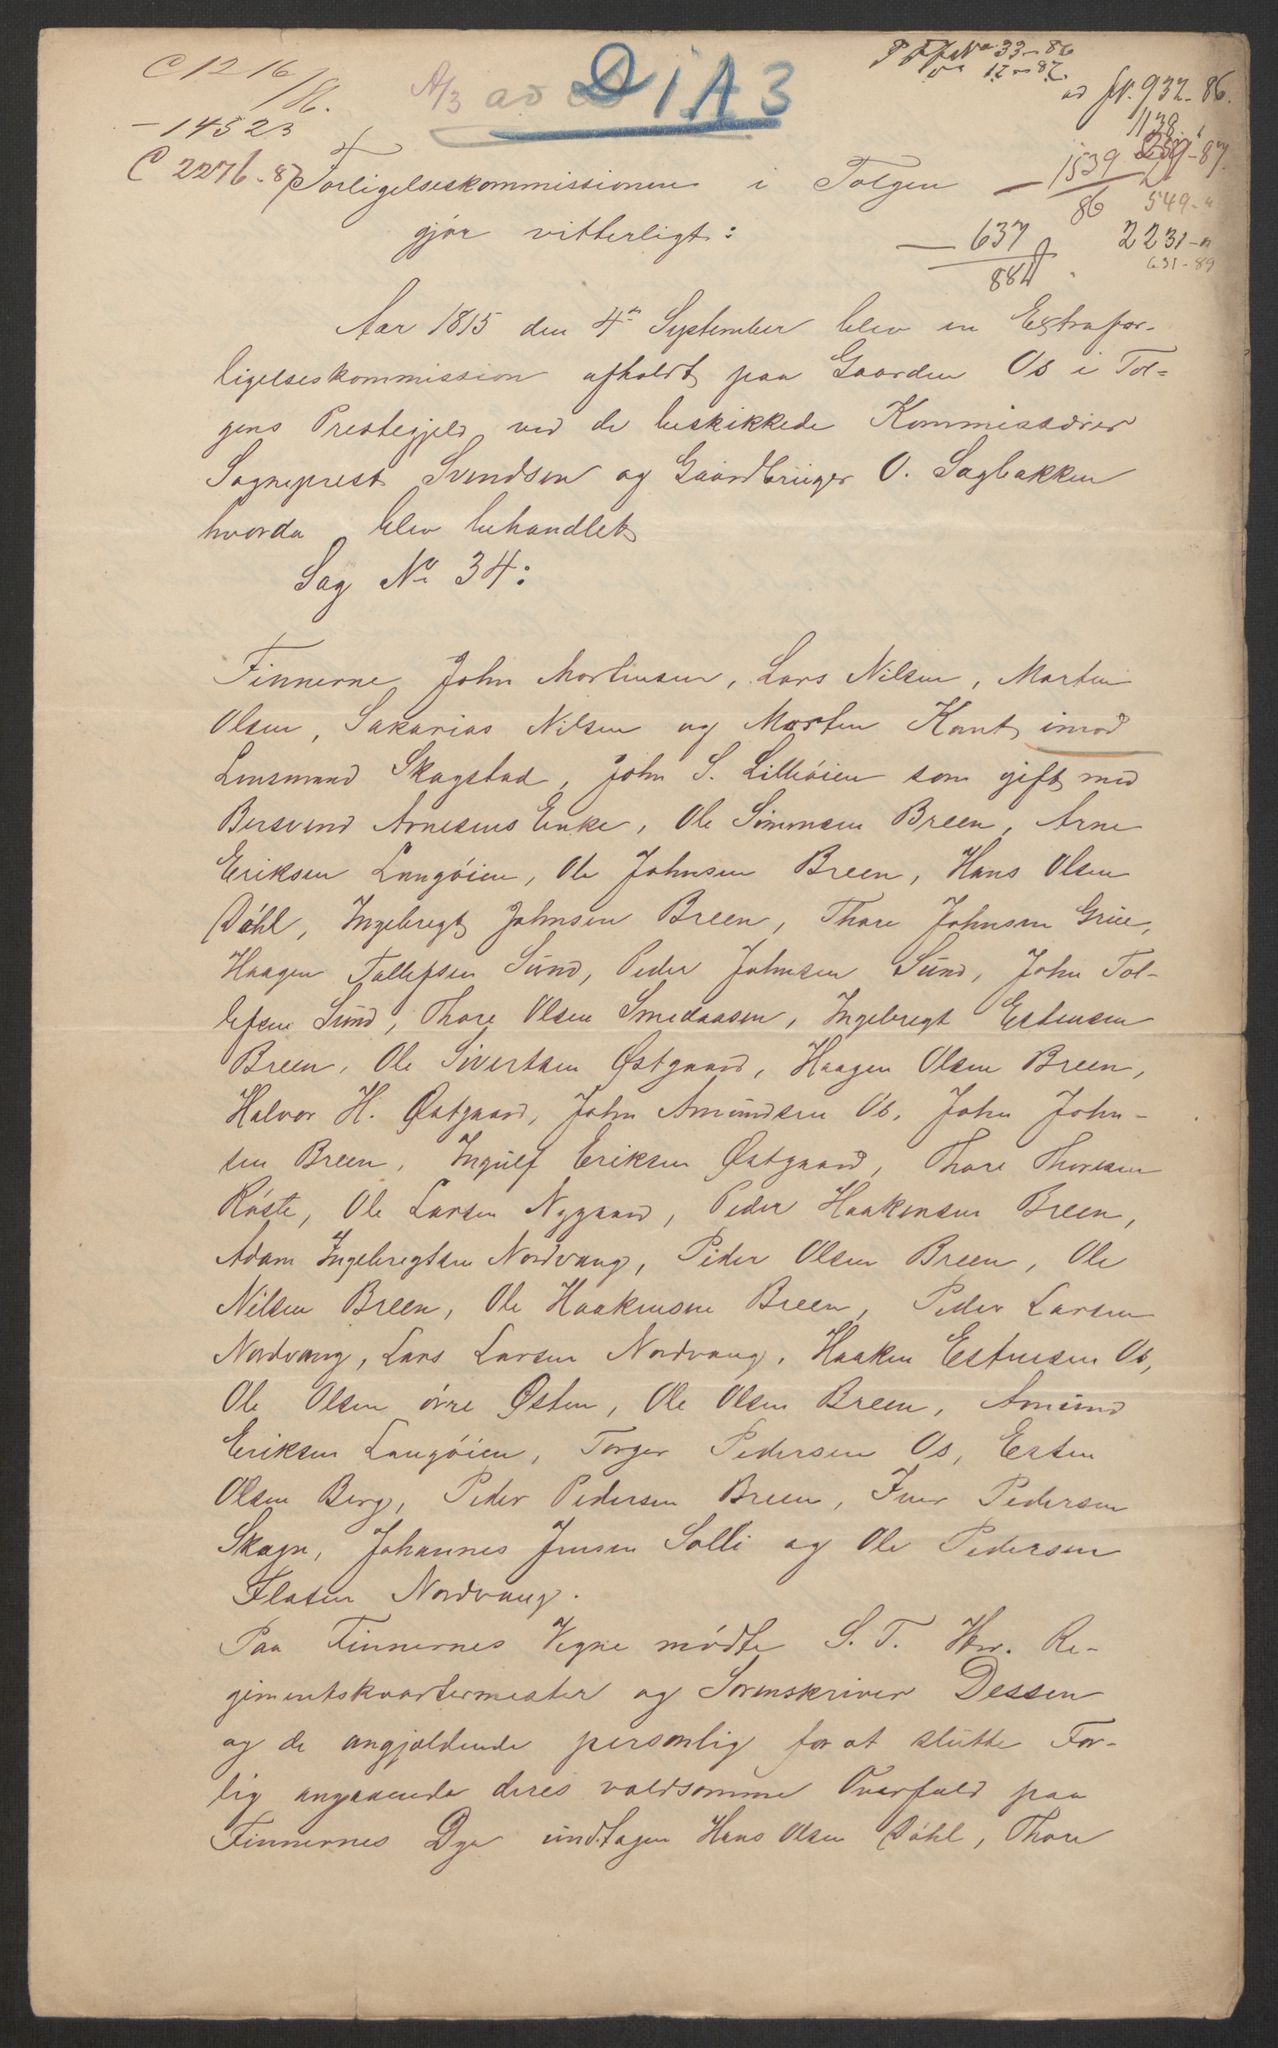 C 1216/86.
A/3 ad D 1 A 3
P FfNo 33-86
do 12-87
ad fN. 932-86.
1138
- 14523
C 2276-87
Forligelseskommissionen i Tolgen
- 1539/86
549-"
gjør vitterligt:
- 637/884
2231-"
631-89
Aar 1815 den 4de September blev en Extrafor-
ligelseskommission afholdt paa Gaarden Os i Tol-
gens Prestegjeld ved de beskikkede Kommissærer
Sogneprest Svendsen og Gaardbrüger O. Sagbakken
hvorda blev behandlet
Sag No 34:
Finnerne John Mortensen, Lars Nilsen, Morten
Olsen, Sakarias Nilsen og Morten Kant imod
Lensmand Skogstad, John S. Lilleøien som gift med
Bersvend Arnesens Enke, Ole Simensen Breen, Arne
Eriksen Langøien, Ole Johnsen Breen, Hans Olsen
Døhl, Ingebregt Johnsen Breen, Thore Johnsen Grüe,
Haagen Tollefsen Sünd, Peder Johnsen Sünd, John Tol-
lefsen Sünd, Thore Olsen Smedaasen, Ingebregt Estensen
Breen, Ole Sivertsen Østgaard, Haagen Olsen Breen,
Halvor H. Østgaard, John Amündsen Os, John John-
sen Breen, Ingülf Eriksen Østgaard, Thore Thoresen
Røste, Ole Larsen Nygaard, Peder Haakensen Breen,
Adam Ingebregtsen Nordvang, Peder Olsen Breen, Ole
Nilsen Breen, Ole Haakensen Breen, Peder Larsen
Nordvang, Lars Larsen Nordvang, Haaken Estensen Os,
Ole Olsen øvre Østen, Ole Olsen Breen, Amünd
Eriksen Langøien, Torger Pedersen Os, Esten
Olsen Berg, Peder Pedersen Breen, Iver Pedersen
Skogn, Johannes Jensen Solli og Ole Pedersen
Flaten Nordvang.
Paa Finnernes Vegne mødte S. T. Hr. Re-
gimentskvartermester og Sorenskriver Dessen
og de angjældende personlig for at slütte For-
lig angaaende deres voldsomme Overfald paa
Finnernes Dyr ündtagen Hans Olsen Døhl, Thore